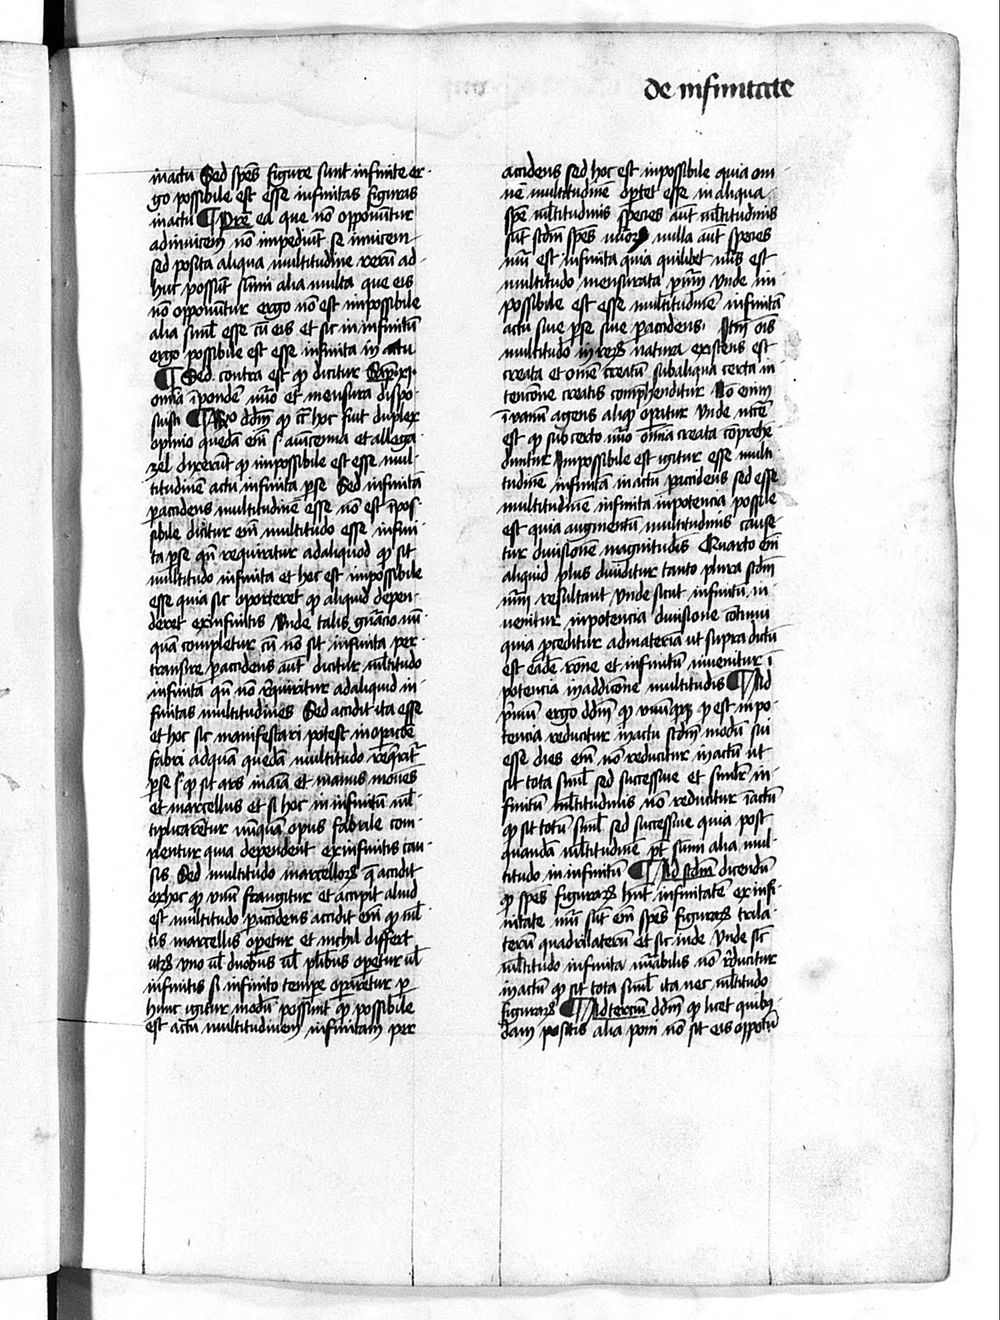 de infinitate
inactu Sed spēs figure sunt infinite er-
go possibile est esse infinitas figuras
inactu ¶ Pret̄ ea que nō opponūtur
adinvicem nō impediūt se invicem
sed posita aliqua multitudine rerū ad-
huc possūt sumi alia multa que eis
nō opponūtur ergo nō est impossibile
alia siml̄ esse cū eis et sic in infinitū
ergo possibile est esse infinita in actu
¶ Sed contra est qꝫ dicitur
omīa ī pondere nūo et mensura dispo-
suisti ¶ ddm̄ qꝫ cͬ hoc fuit duplex
opinio quedā em̄ sͨ avicenna et allega-
zel dixerūt qꝫ impossibile est esse mul-
titudinē actu infinitā ꝑse Sed infinitā
ꝑaccidens multitudinē esse nō est īpos-
sibile dicitur em̄ multitudo esse infini-
ta ꝑse qn̄ requiratur adaliquod qꝫ sit
multitudo infinita et hec est impossibile
esse quia sic oporteret qꝫ aliquid depen-
deret exinfinitis Unde talis gn̄acio nū-
quā completur cū nō sit infinita per-
transire ꝑaccidens aut̄ dicitur ml̄titudo
infinita qn̄ nō reqͥratur adaliquid in-
finitas multitudines Sed accidit ita esse
et hoc sic manifestari potest inopacōe
fabri adquā quedā multitudo reqͥritur
ꝑse sͨ qꝫ sit ars inaīa et manus moves
et martellus et si hoc in infinitū ml̄-
tiplicaretur nūquā opus fabrile com-
pleretur quia dependeret exinfinitis cau-
sis Sed multitudo martelloꝝ q̄ accidit
exhoc qꝫ unū frangitur et accipit aliud
est multitudo ꝑaccidens accidit em̄ qꝫ ml̄-
tis martellis opetur et nichil differt
utꝝ uno ul̄ duobus ul̄ pl̄ibus operetur ul̄
infinitis si infinito tempe operaretur ꝑ
hunc igitur modū possuit qꝫ possibile
est actu multitudinem infinitam per
accidens sed hoc est impossibile quia om-
nē multitudinē oportet esse in aliqua
spē ml̄titudinis species aut̄ ml̄titudinis
sūt scdm̄ spēs nūoꝝ nulla aut̄ species
nūi est infinita quia quilibet nūs est
multitudo mensurata ꝑunū Unde im-
possibile est esse multitudinē infinitā
actu sive ꝑse sive ꝑaccidens Itm̄ oīs
multitudo in reꝝ natura existens est
creata et omē creatū subaliqua certa in
tencōne creatis comprehenditur Nō enim
ī vanū agens aliqͥd opatur Unde necē
est qꝫ sub certo nūo omīa creata cōprehē
duntur Impossibile est igitur esse multi
tudinē infinitam inactu ꝑaccidens sed esse
multitudinē infinitā inpotencia possibile
est quia augmentū multitudinis cause-
tur divisionē magnitudis Quarto em̄
aliquid plus dividitur tanto plura scdm̄
nūm resultant Unde sicut infinitū in
venitur inpotencia divisione cōtinui
quia ꝓceditur admateriā ut supra dictū
est eadē rōne et infinitū invenitur ī
potencia in addicōne multitudis ¶ Ad
pͥmū ergo ddm̄ qꝫ unūqꝫ qꝫ est inpo-
tencia reducitur inactū scdm̄ modū sui
esse dies em̄ nō reducitur inactū ut
sit tota siml̄ sed successive et siml̄r in-
finitū ml̄titudinis nō reducitur īactū
qꝫ sit totū siml̄ sed successive quia post
quandā ml̄titudinē pt̄ sumi alia mul-
titudo in infinitū ¶ Ad scdm̄ dicendū
qꝫ spēs figuraꝝ hn̄t infinitatē ex infi-
nitate nūi sūt em̄ spēs figuraꝝ trila-
terū quadrilaterū et sic inde Unde sic̄
ml̄titudo infinita nūabilis nō reducitur
inactū qꝫ sit tota siml̄ ita nec ml̄titudo
figuraꝝ ¶ Ad terciū ddm̄ qꝫ licet quibꝫ
dam positis alia poni nō sit eis oppotū